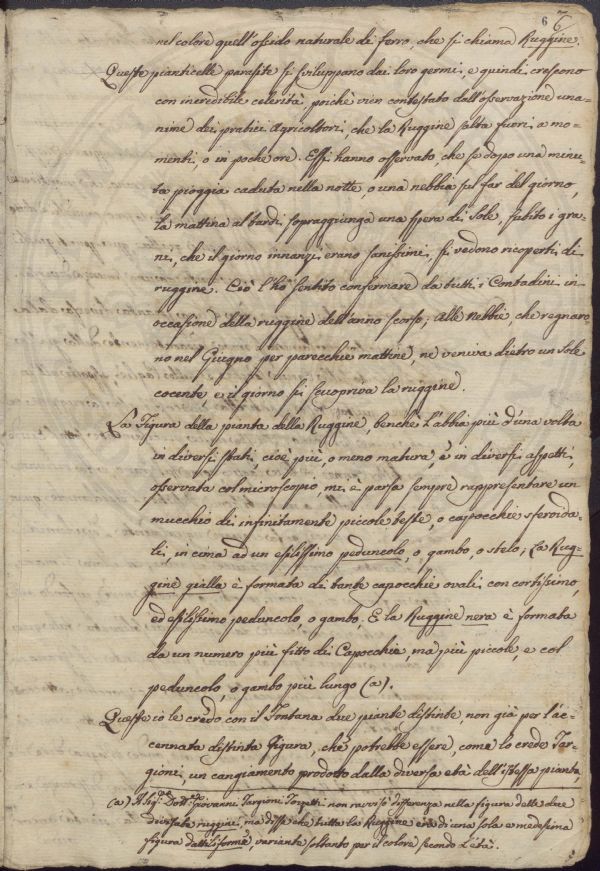 6 6
nel colore quell'ossido naturale di ferro, che si chiama Ruggine.
Queste pianticelle parasite si sviluppano dai loro germi, e quindi crescono
con incredibile celerità, poichè vien contestato dall'osservazione una=
nime dei pratici Agricoltori, che la Ruggine salta fuori a mo=
menti, o in poche ore. Essi hanno osservato, che se dopo una minu=
ta pioggia caduta nella notte, o una nebbia sul far del giorno,
la mattina al tardi sopraggiunga una spera di Sole, subito i gra=
ni, che il giorno innanzi erano sanissimi, si vedono ricoperti di
ruggine. Ciò l'hò sentito confermare da tutti i Contadini in
occasione della ruggine dell'anno scorso; Alle Nebbie, che regnaro=
no nel Giugno per parecchie mattine, ne veniva dietro un Sole
cocente, e il giorno si scuopriva la ruggine.
La Figura della pianta della Ruggine, benchè l'abbia più d'una volta
in diversi stati, cioè più, o meno matura, e in diversi aspetti,
osservata col microscopio, mi è parsa sempre rappresentare un
mucchio di infinitamente piccole teste, o capocchie sferoida=
li, in cima ad un esilissimo peduncolo, o gambo, o stelo; La Rug=
gine gialla è formata di tante capocchie ovali con cortissimo,
ed esilissimo peduncolo, o gambo. E la Ruggine nera è formata
da un numero più fitto di Capocchie, ma più piccole, e col
peduncolo, o gambo più lungo (a).
Queste io le credo con il Fontana due piante distinte, non già per l'ac=
cennata distinta figura, che potrebbe essere, come lo crede Tar=
gioni, un cangiamento prodotto dalla diversa età dell'istessa pianta,
(a) Il Sig.re Dott.re Giovanni Targioni Tozzetti non ravvisò differenza nella figura delle due
divisate ruggini, ma disse che tutta la Ruggine era di una sola e medesima
figura variante soltanto per il colore secondo l'età.